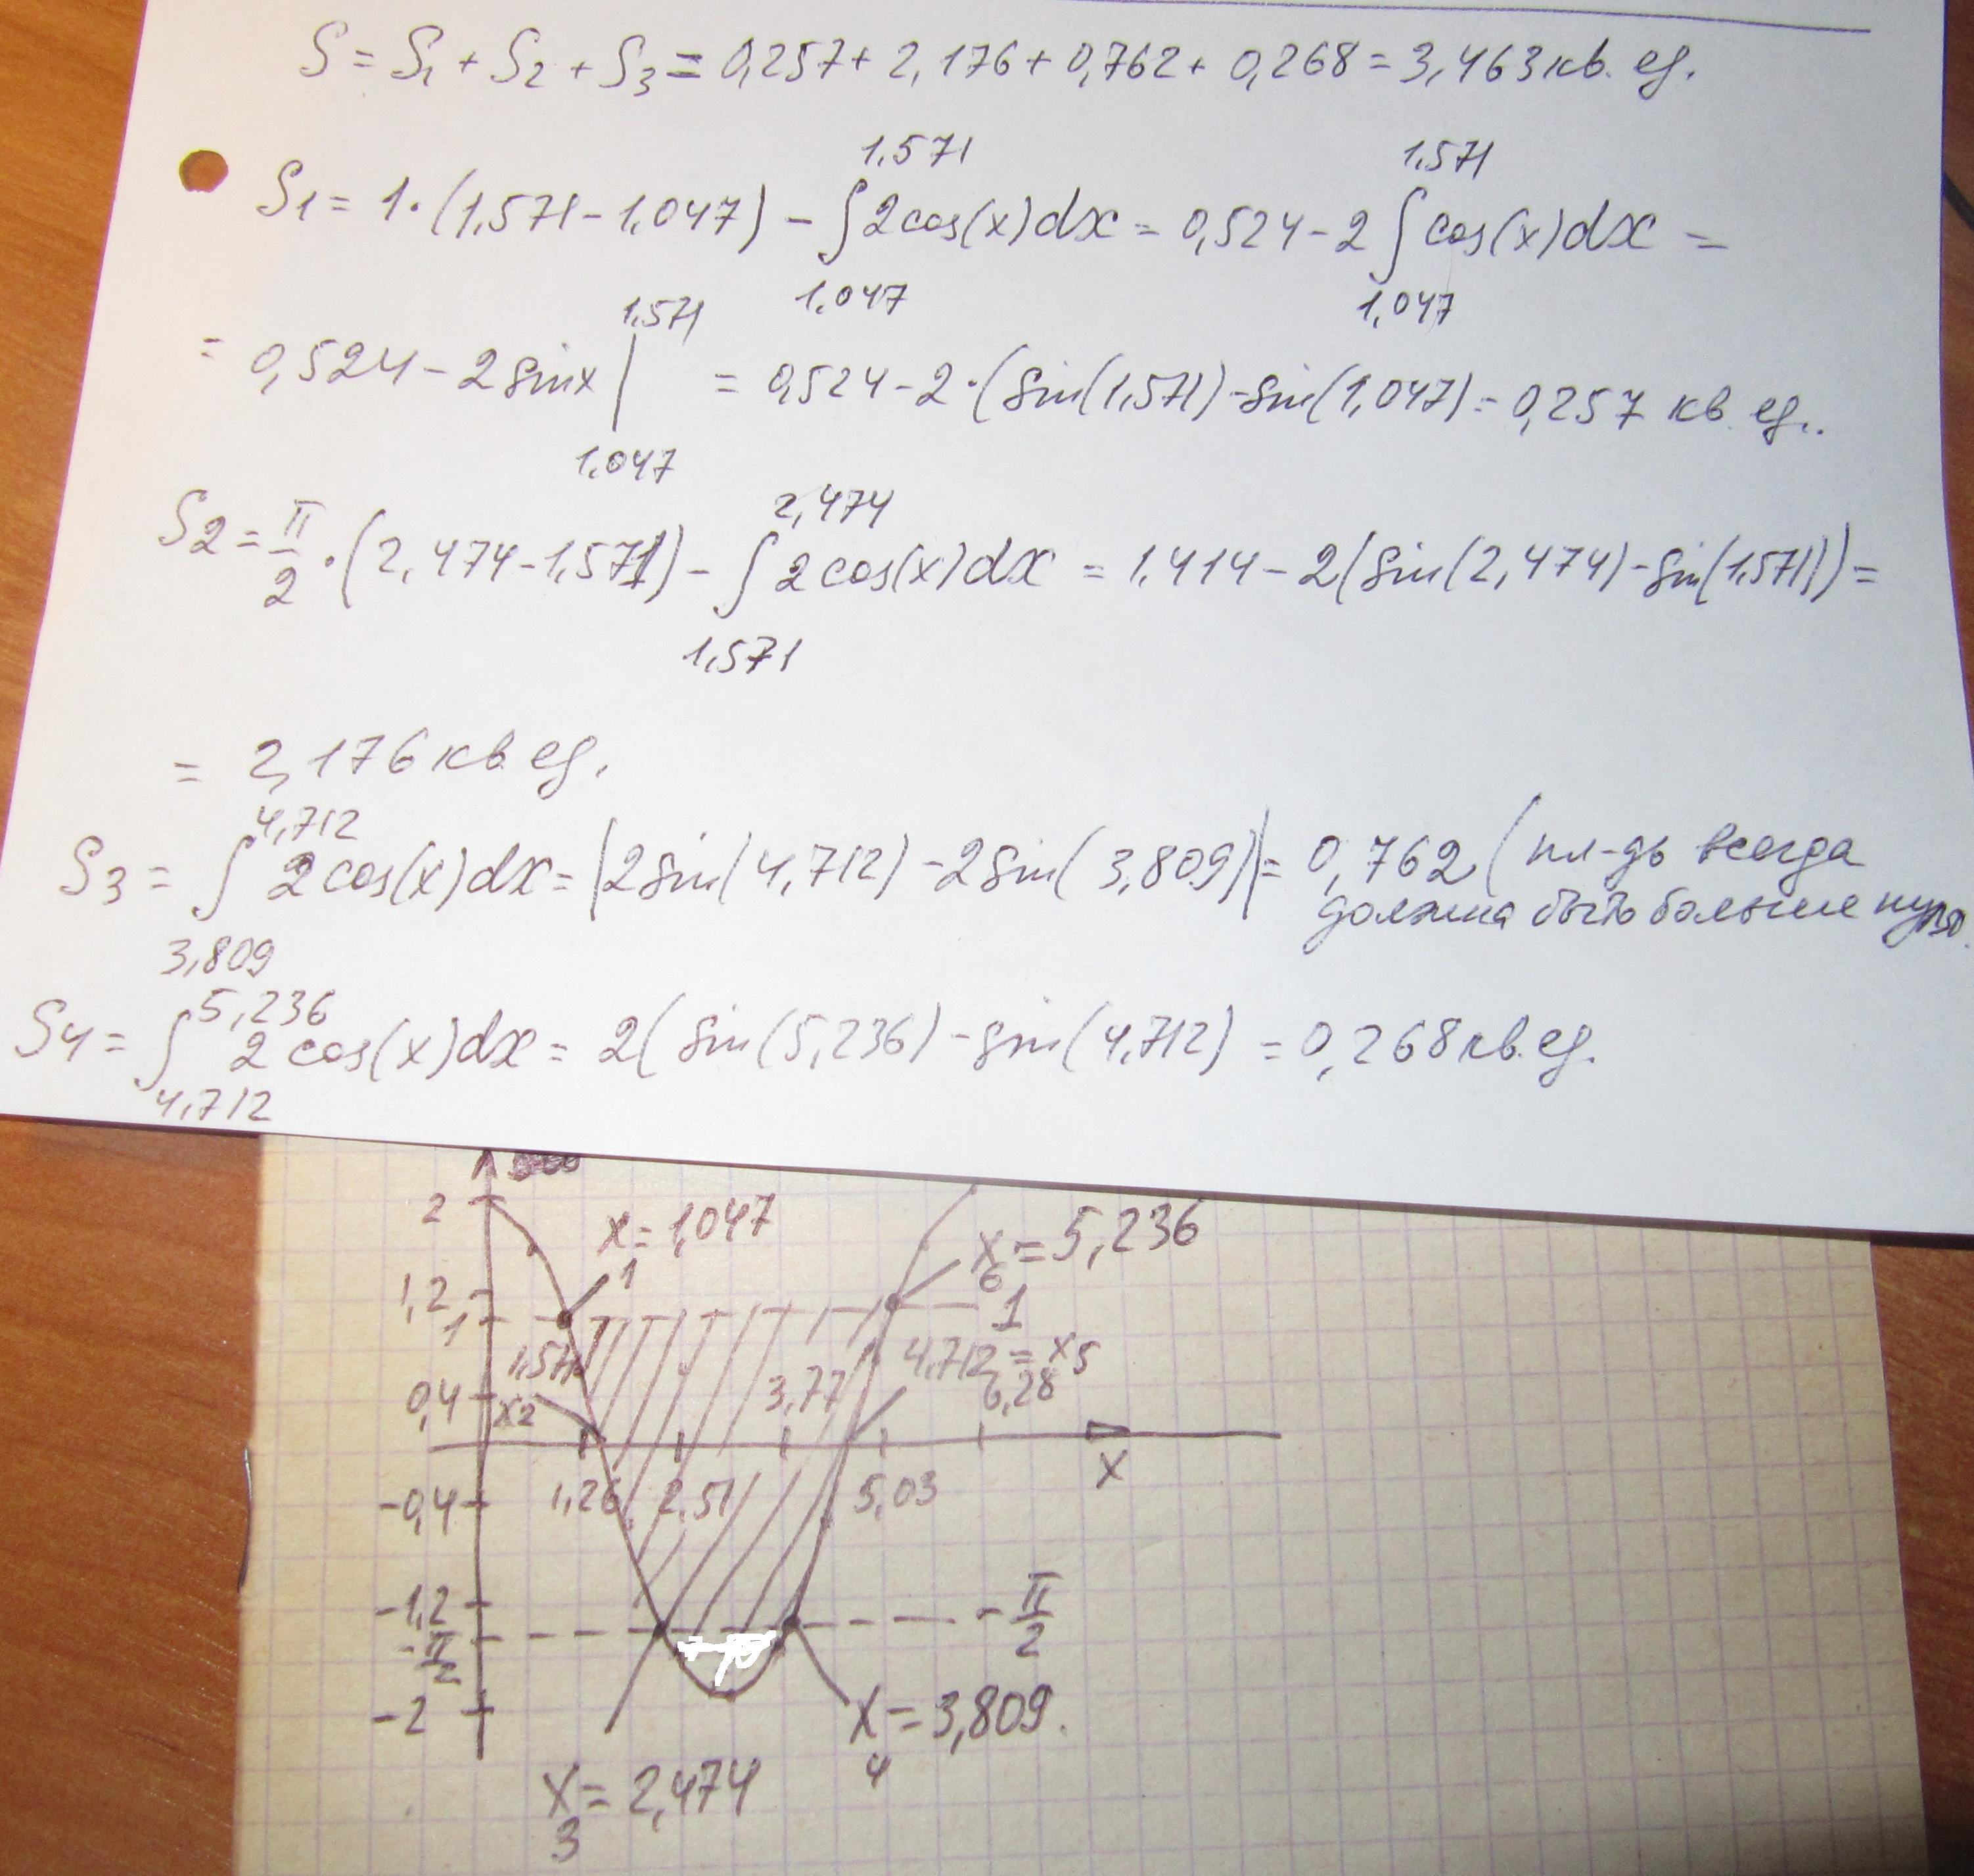 S = S₁ + S₂ + S₃ = 0,257 + 2,176 + 0,762 + 0,268 = 3,463 кв. ед.
S1 = 1·(1,571 - 1,047) - ∫_{1.047}^{1.571} 2cos(x)dx = 0,524 - 2 ∫_{1,047}^{1.571} cos(x)dx =
= 0,524 - 2 sin x |_{1.047}^{1.571} = 0,524 - 2·(sin(1,571) - sin(1,047) = 0,257 кв ед..
S2 = π/2 · (2,474 - 1,571) - ∫_{1,571}^{2,474} 2cos(x)dx = 1.414 - 2(sin(2,474) - sin(1.571)) =
= 2,176 кв ед.
S3 = ∫_{3,809}^{4,712} 2cos(x)dx = |2sin(4,712) - 2sin(3,809)| = 0,762 (пл-дь всегда
должна быть больше нуля
S4 = ∫_{4,712}^{5,236} 2cos(x)dx = 2(sin(5,236) - sin(4,712) = 0,268 кв.ед.
2
x = 1,047
1
x₆ = 5,236
1,2
1
1
1,571
4,712 = x5
0,4
x2
3,77
6,28
x
1,26
2,51
5,03
-0,4
-1,2
-π/2
-π/2
-2
x₄ = 3,809.
x₃ = 2,474